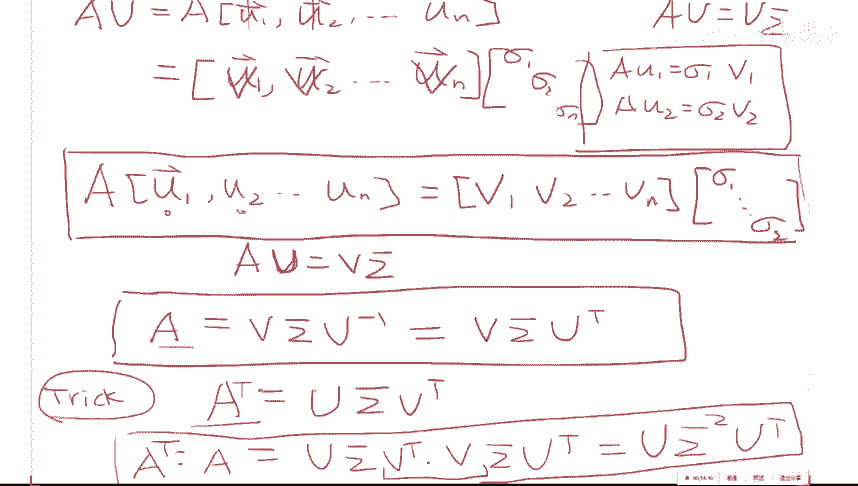 AU = A[u⃗₁, u⃗₂, ... uₙ]   AU = VΣ
= [v⃗₁, v⃗₂ ... v⃗ₙ][σ₁ σ₂ σₙ]   Au₁ = σ₁ V₁
Au₂ = σ₂ V₂
A[u⃗₁, u₂ ... uₙ] = [V₁ V₂ ... Vₙ][σ₁ ⋱ σ₂]
AU = VΣ
A = VΣU⁻¹ = VΣUᵀ
Trick   Aᵀ = UΣVᵀ
Aᵀ·A = UΣVᵀ·VΣUᵀ = UΣ²Uᵀ